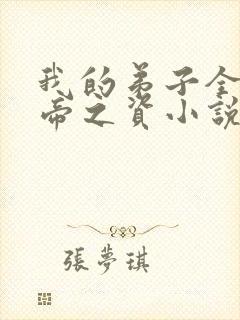 我的弟子全
帝之資小説
張夢琪